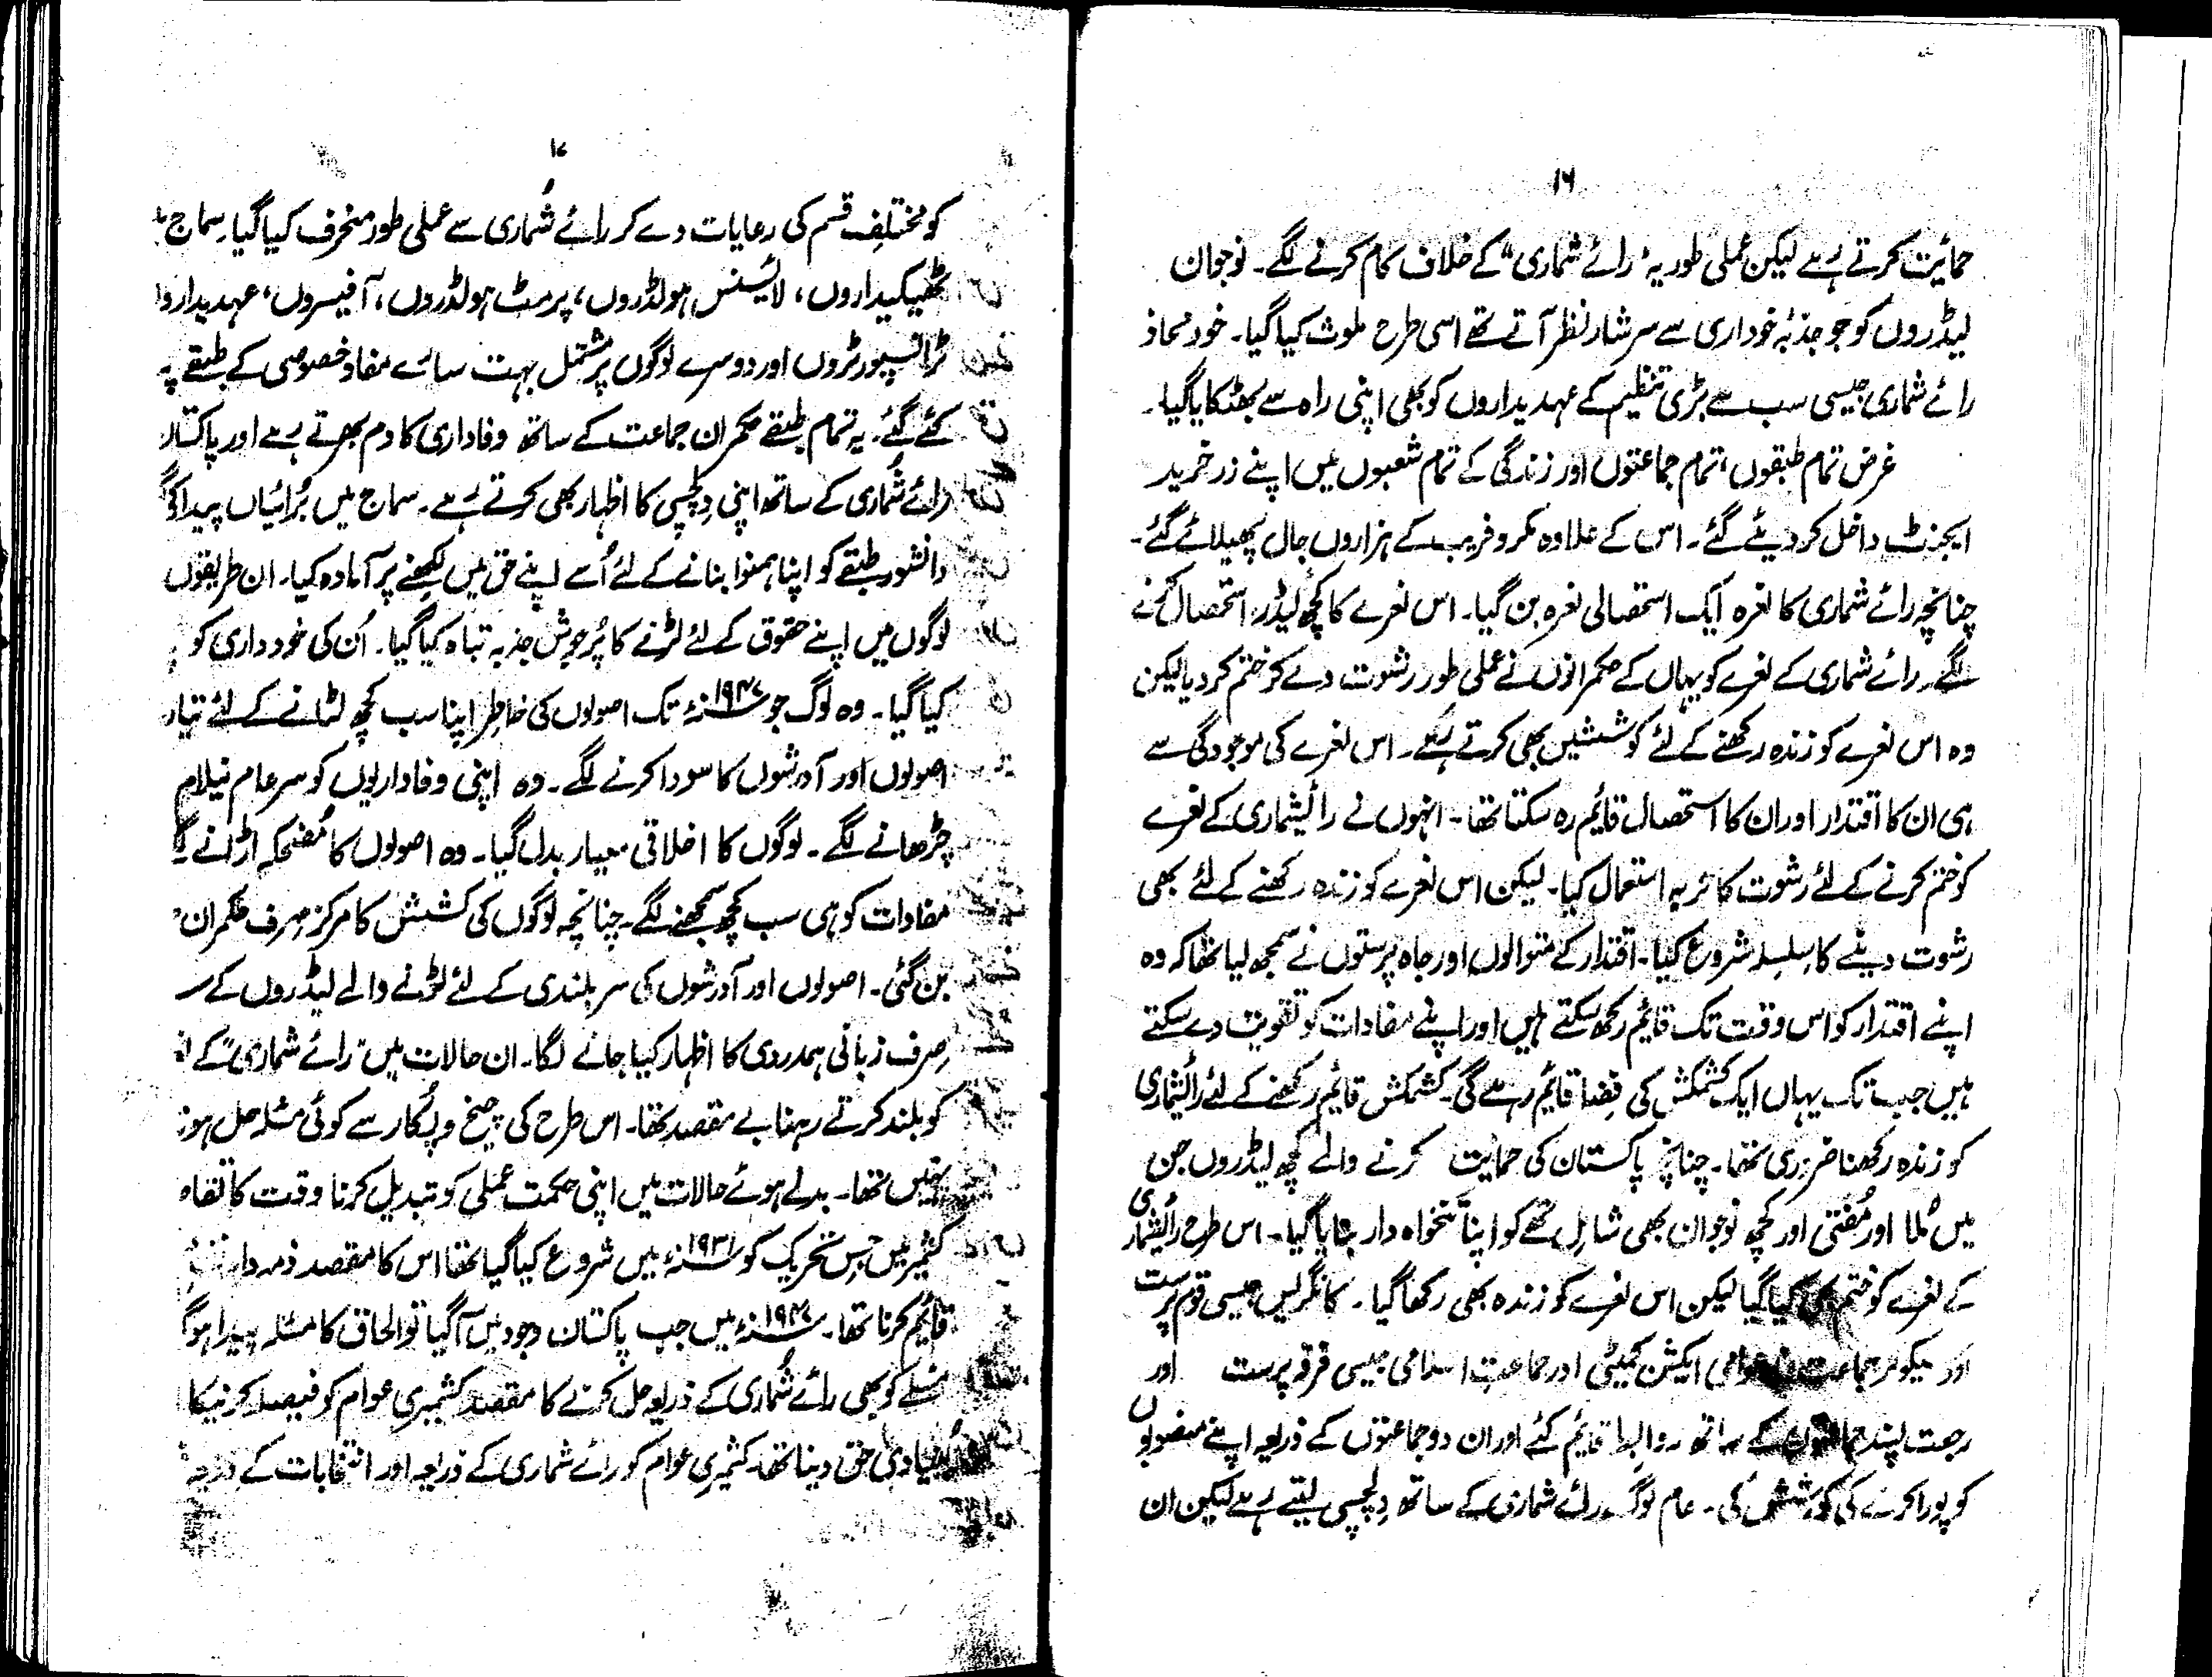 ۱۶
حمائیت کرتے رہے لیکن عملی طور یہ "رائے شماری" کے خلاف کام کرنے لگے۔ نوجوان
لیڈروں کو جو جذبۂ خوداری سے سرشار نظر آتے تھے اسی طرح ملوث کیا گیا۔ خود محاذ
رائے شماری جیسی سب سے بڑی تنظیم کے عہدیداروں کو بھی اپنی راہ سے بھٹکایا گیا۔
غرض تمام طبقوں، تمام جماعتوں اور زندگی کے تمام شعبوں میں اپنے زر خرید
ایجنٹ داخل کر دیئے گئے۔ اس کے علاوہ مکر و فریب کے ہزاروں جال پھیلائے گئے۔
چنانچہ رائے شماری کا نعرہ ایک استحصالی نعرہ بن گیا۔ اس نعرے کا کچھ لیڈر استحصال کرنے
لگے۔ رائے شماری کے نعرے کو یہاں کے حکمرانوں نے عملی طور رشوت دے کر ختم کر دیا لیکن
وہ اس نعرے کو زندہ رکھنے کے لئے کوششیں بھی کرتے رہے۔ اس نعرے کی موجودگی سے
ہی ان کا اقتدار اور ان کا استحصال قائیم رہ سکتا تھا۔ انہوں نے رائیشماری کے نعرے
کو ختم کرنے کے لئے رشوت کا حربہ استعمال کیا۔ لیکن اس نعرے کو زندہ رکھنے کے لئے بھی
رشوت دینے کا سلسلہ شروع کیا۔ اقتدار کے متوالوں اور جاہ پرستوں نے سمجھ لیا تھا کہ وہ
اپنے اقتدار کو اس وقت تک قائیم رکھ سکتے ہیں اور اپنے مفادات کو تقویت دے سکتے
ہیں جب تک یہاں ایک کشمکش کی فضا قائیم رہے گی۔ کشمکش قائیم رکھنے کے لئے رائیشماری
کو زندہ رکھنا ضروری تھا۔ چنانچہ پاکستان کی حمایت کرنے والے کچھ لیڈروں جن
میں مُلا اور مُفتی اور کچھ نوجوان بھی شامِل تھے کو اپنا تنخواہ دار بنایا گیا۔ اس طرح رائیشماری
کے نعرے کو ختم بھی کیا گیا لیکن اس نعرے کو زندہ بھی رکھا گیا۔ کانگریس جیسی قوم پرست
اور سیکولر جماعت نے عوامی ایکشن کمیٹی اور جماعت اسلامی جیسی فرقہ پرست اور
رجعت پسند جماعتوں کے ساتھ روابط قائیم کئے اور ان دو جماعتوں کے ذریعہ اپنے منصوبوں
کو پورا کرنے کی کوشش کی۔ عام لوگ رائے شماری کے ساتھ دِلچسپی لیتے رہے لیکن ان
۱۷
کو مختلِف قسم کی رعایات دے کر رائے شُماری سے عملی طور منحرف کیا گیا۔ سماج
ٹھیکیداروں، لائیسنس ہولڈروں، پرمٹ ہولڈروں، آفیسروں، عہدیدارو
ٹرانسپورٹروں اور دوسرے لوگوں پر مشتمل بہت سارے مفاد خصوصی کے طبقے
کئے گئے۔ یہ تمام طبقے حکمران جماعت کے ساتھ وفاداری کا دم بھرتے رہے اور پاکستا
رائے شُماری کے ساتھ اپنی دِلچسپی کا اظہار بھی کرتے رہے۔ سماج میں بُرائیاں پیدا
دانشور طبقے کو اپنا ہمنوا بنانے کے لئے اُسے اپنے حق میں لکھنے پر آمادہ کیا۔ ان طریقوں
لوگوں میں اپنے حقوق کے لئے لڑنے کا پُرجوش جذبہ تباہ کیا گیا۔ اُن کی خود داری کو
کیا گیا۔ وہ لوگ جو ۱۹۴۷ء تک اصولوں کی خاطر اپنا سب کچھ لٹانے کے لئے تیار
اصولوں اور آدرشوں کا سودا کرنے لگے۔ وہ اپنی وفاداریوں کو سرعام نیلام
چڑھانے لگے۔ لوگوں کا اخلاقی معیار بدل گیا۔ وہ اصولوں کا مُضحکہ اڑانے
مفادات کو ہی سب کچھ سمجھنے لگے۔ چنانچہ لوگوں کی کشش کا مرکز صرف حکمران
بن گئی۔ اصولوں اور آدرشوں کی سربلندی کے لئے لڑنے والے لیڈروں کے
صِرف زبانی ہمدردی کا اظہار کیا جانے لگا۔ ان حالات میں "رائے شماری" کے
کو بلند کرتے رہنا بے مقصد تھا۔ اس طرح کی چیخ و پُکار سے کوئی مسئلہ حل ہونے
نہیں تھا۔ بدلے ہوئے حالات میں اپنی حِکمت عملی کو تبدیل کرنا وقت کا تقاہ
کشمیر میں جس تحریک کو ۱۹۳۱ء میں شروع کیا گیا تھا اس کا مقصد ذمہ دار
قائیم کرنا تھا۔ ۱۹۴۷ء میں جب پاکستان وجود میں آگیا تو الحاق کا مسئلہ پیدا ہوگ
مسئلے کو بھی رائے شُماری کے ذریعہ حل کرنے کا مقصد کشمیری عوام کو فیصلہ کرنیکا
بُنیادی حق دینا تھا۔ کشمیری عوام کو رائے شماری کے ذریعہ اور انتخابات کے ذریعہ